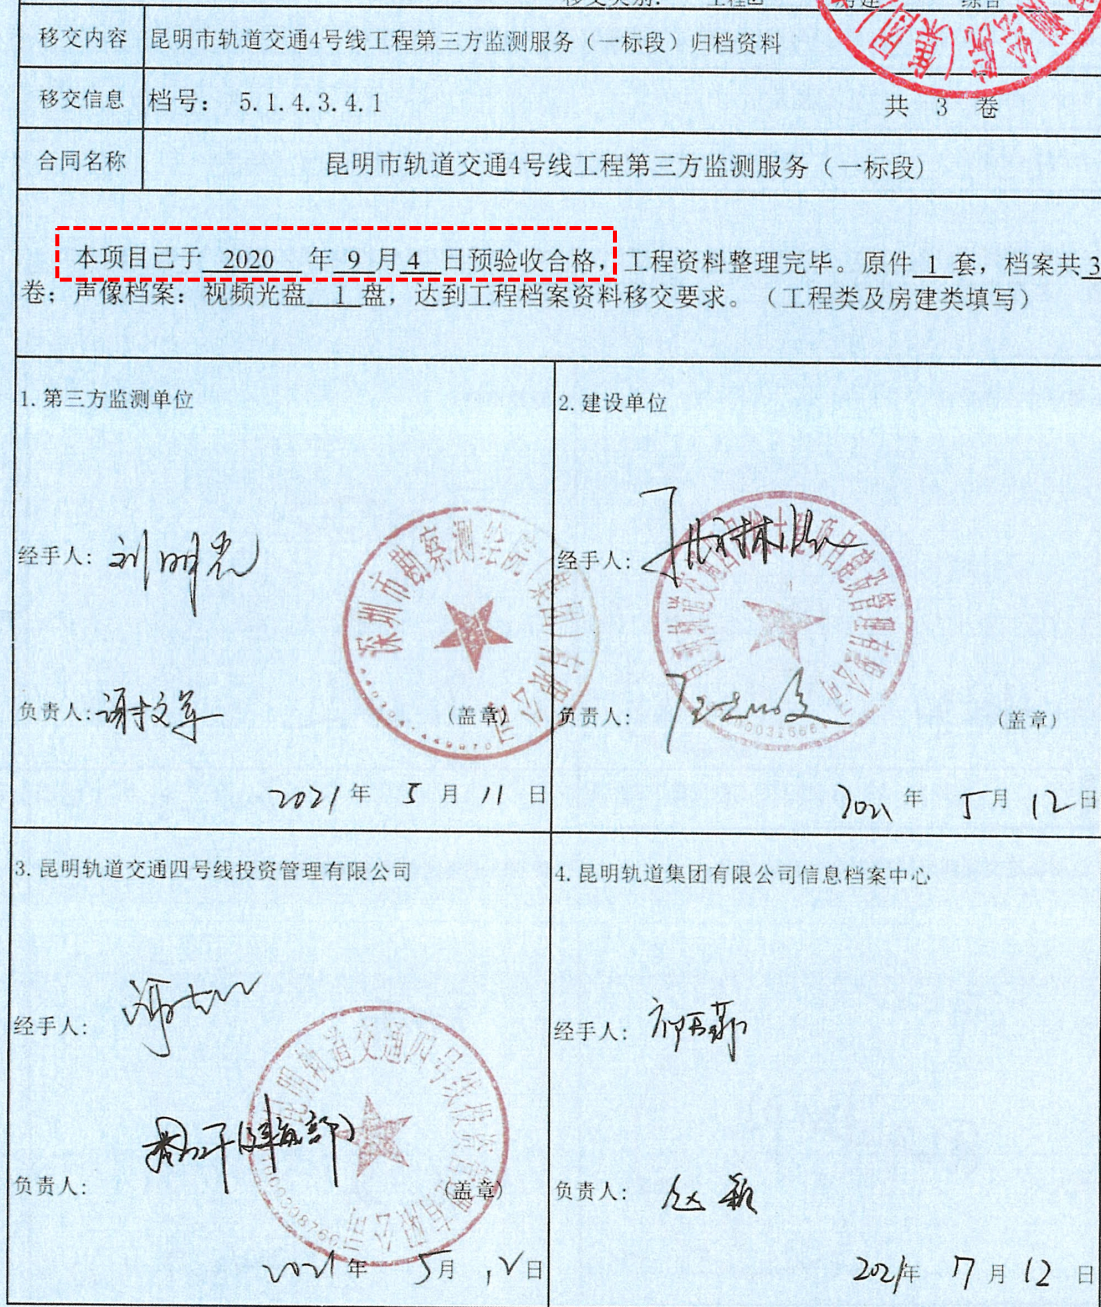 移交内容 昆明市轨道交通4号线工程第三方监测服务（一标段）归档资料
移交信息 档号： 5.1.4.3.4.1 共 3 卷
合同名称 昆明市轨道交通4号线工程第三方监测服务（一标段）
本项目已于 2020 年 9 月 4 日预验收合格，工程资料整理完毕。原件 1 套，档案共 3
卷；声像档案：视频光盘 1 盘，达到工程档案资料移交要求。（工程类及房建类填写）
1.第三方监测单位
经手人：刘明亮
深圳市勘察测绘院（集团）有限公司
负责人：谢文军
（盖章）
2021 年 5 月 11 日
2.建设单位
经手人：
负责人：
（盖章）
2021 年 5 月 12 日
3.昆明轨道交通四号线投资管理有限公司
经手人：
昆明轨道交通四号线投资管理有限公司
负责人：
（盖章）
2021 年 5 月 12 日
4.昆明轨道集团有限公司信息档案中心
经手人：
负责人：赵颖
2021 年 7 月 12 日